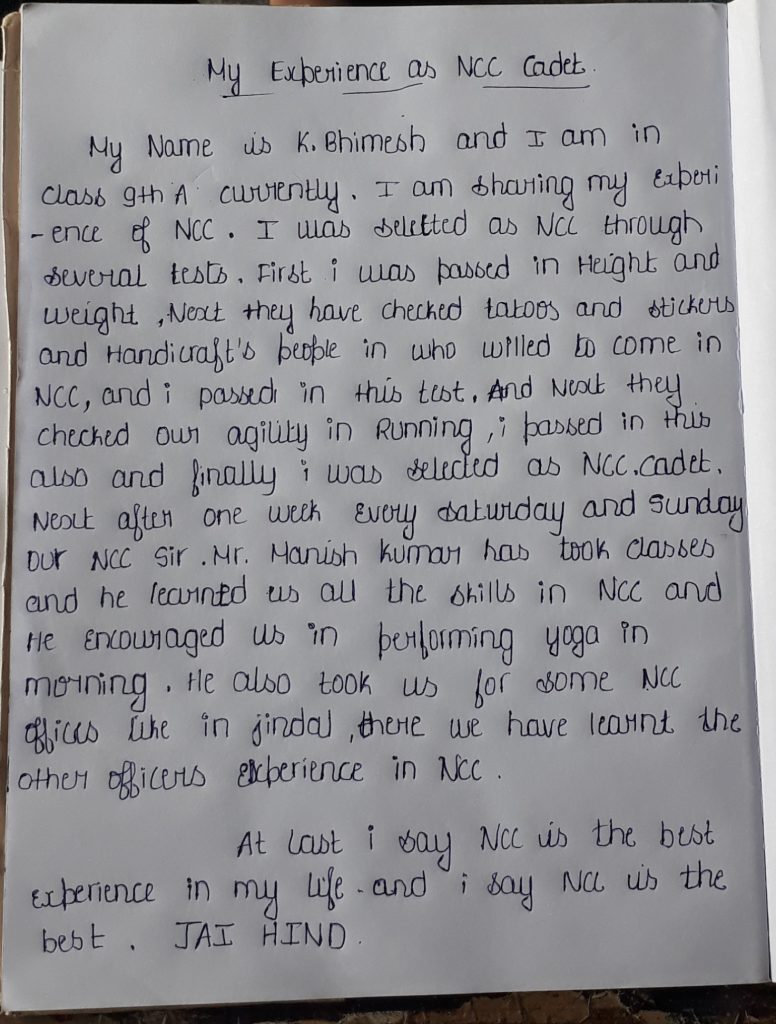 My Experience as NCC Cadet.
My Name is K. Bhimesh and I am in
class 9th A currently. I am sharing my Experi
-ence of NCC. I was seletted as NCC through
several tests. First i was passed in Height and
weight, Next they have checked tatoos and stickers
and Handicraft's people in who willed to come in
NCC, and i passed in this test. And Next they
checked our agility in Running, i passed in this
also and finally i was selected as NCC. cadet.
Next after one week Every saturday and sunday
our NCC Sir. Mr. Manish Kumar has took classes
and he learnted us all the skills in NCC and
He Encouraged us in performing yoga in
morning. He also took us for some NCC
offices like in jindal, there we have learnt the
other officers experience in NCC.
At Last i say NCC is the best
Experience in my life. and i say NCC is the
best. JAI HIND.